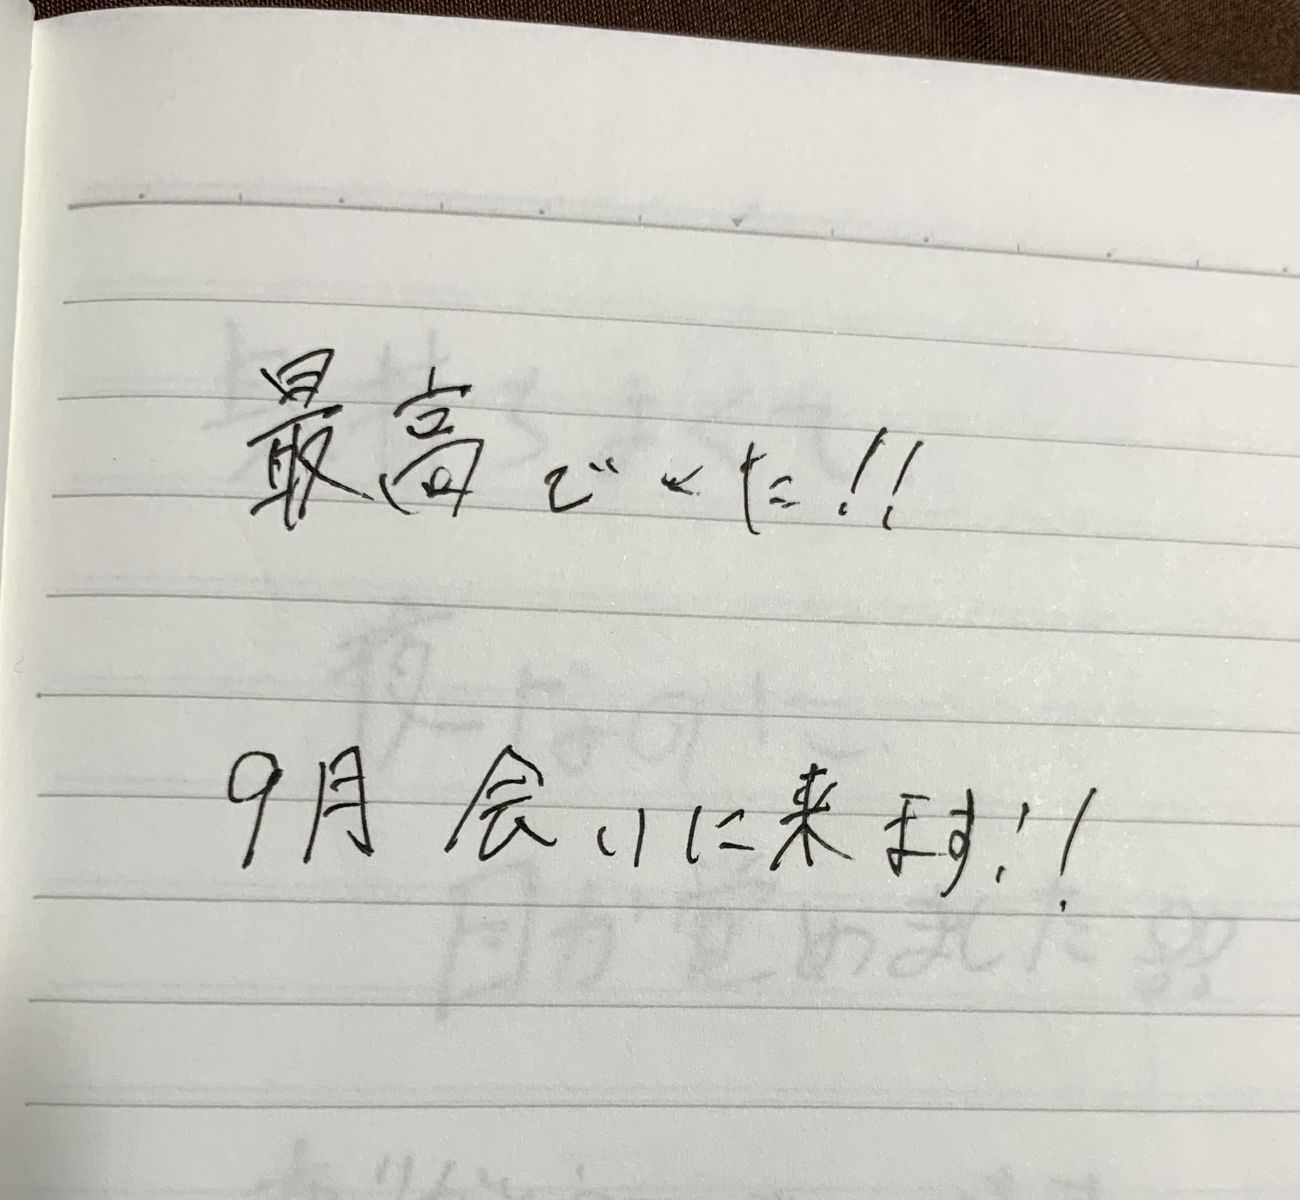 最高でした!!
9月 会いに来ます!!